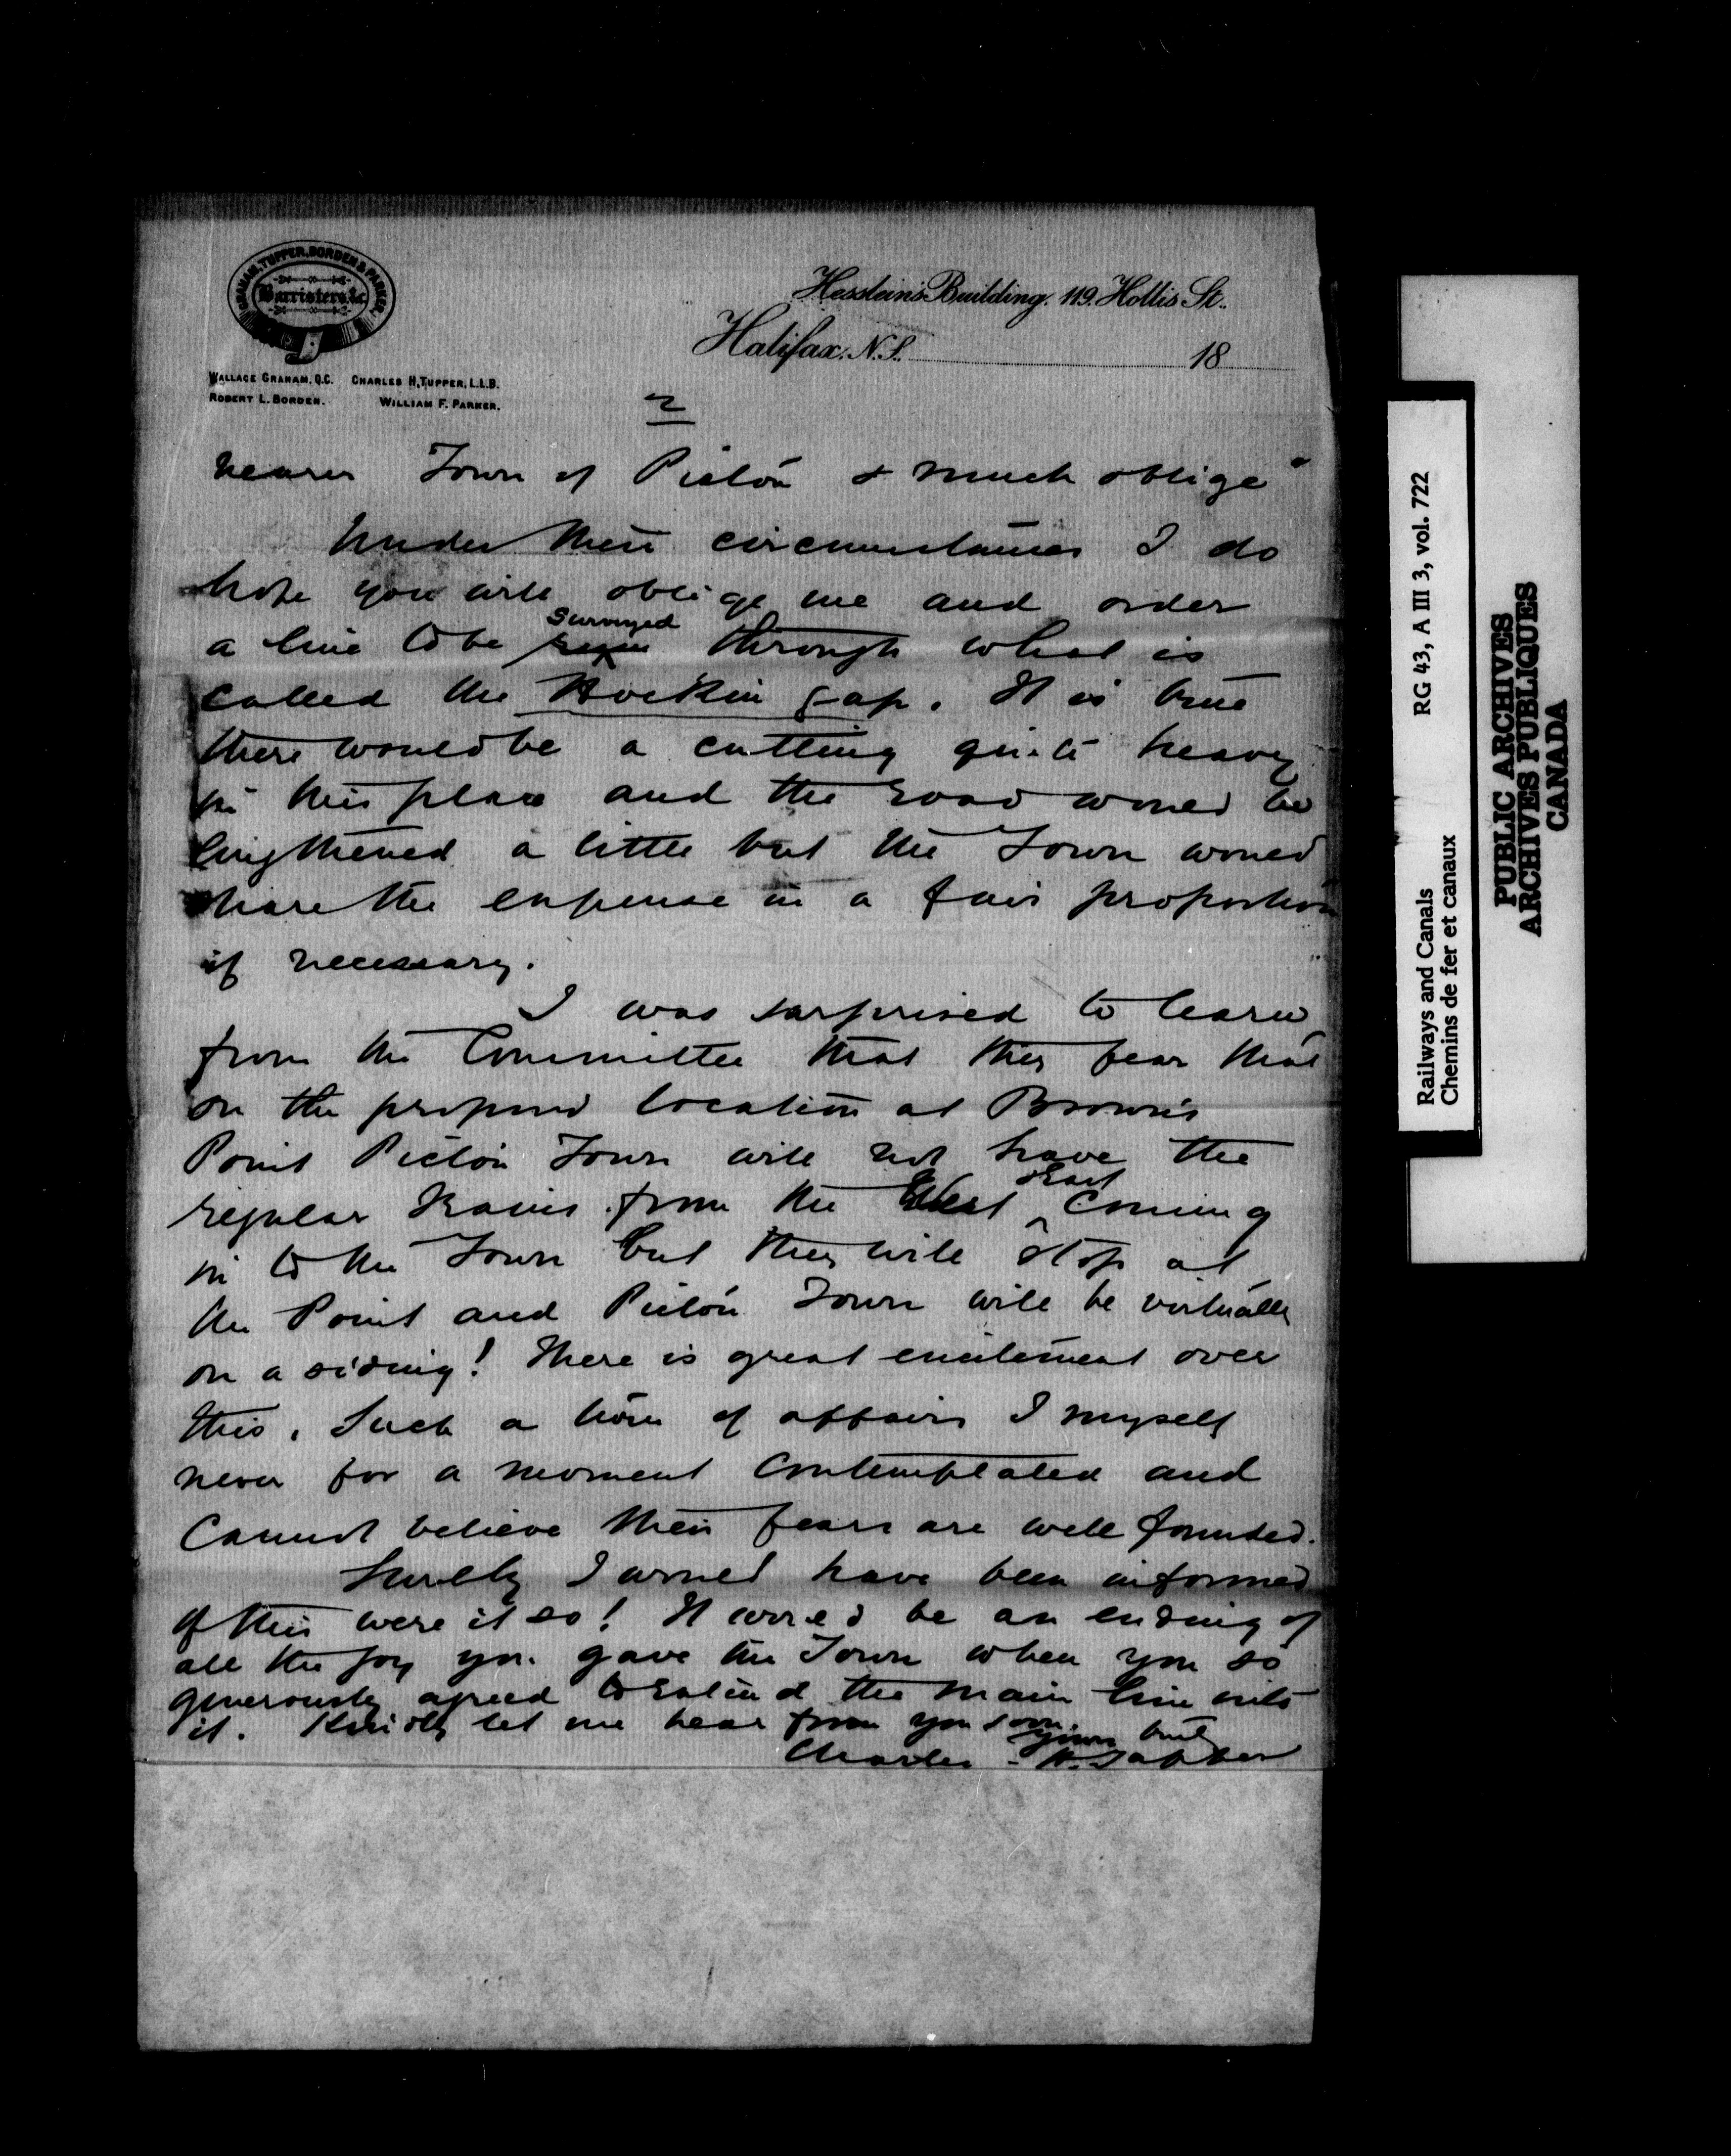 GRAHAM, TUPPER, BORDEN & PARKER.
Barristers &c.
Hesslein's Building, 119, Hollis St.
Halifax, N.S. 18
WALLACE GRAHAM, Q.C. CHARLES H. TUPPER, L.L.B.
ROBERT L. BORDEN. WILLIAM F. PARKER.
2
nearer Town of Pictou & much oblige"
Under these circumstances I do
hope you will oblige me and order
a line to be surveyed through what is
called the Hockin gap. It is true
there would be a cutting quite heavy
in this place and the road would be
lengthened a little but the Town would
share the expense in a fair proportion
if necessary.
I was surprised to learn
from the Committee that they fear that
on the proposed location at Brown's
Point Pictou Town will not have the
regular trains from the West East coming
in to the Town but they will stop at
the Point and Pictou Town will be virtually
on a siding! There is great excitement over
this. Such a turn of affairs I myself
never for a moment contemplated and
cannot believe their fears are well founded.
Surely I would have been informed
of this were it so! It would be an ending of
all the joy you gave the Town when you so
generously agreed to extend the main line into
it. Kindly let me hear from you soon.
Yours truly
Charles H. Tupper
RG 43, A III 3, vol. 722
Railways and Canals
Chemins de fer et canaux
PUBLIC ARCHIVES
ARCHIVES PUBLIQUES
CANADA